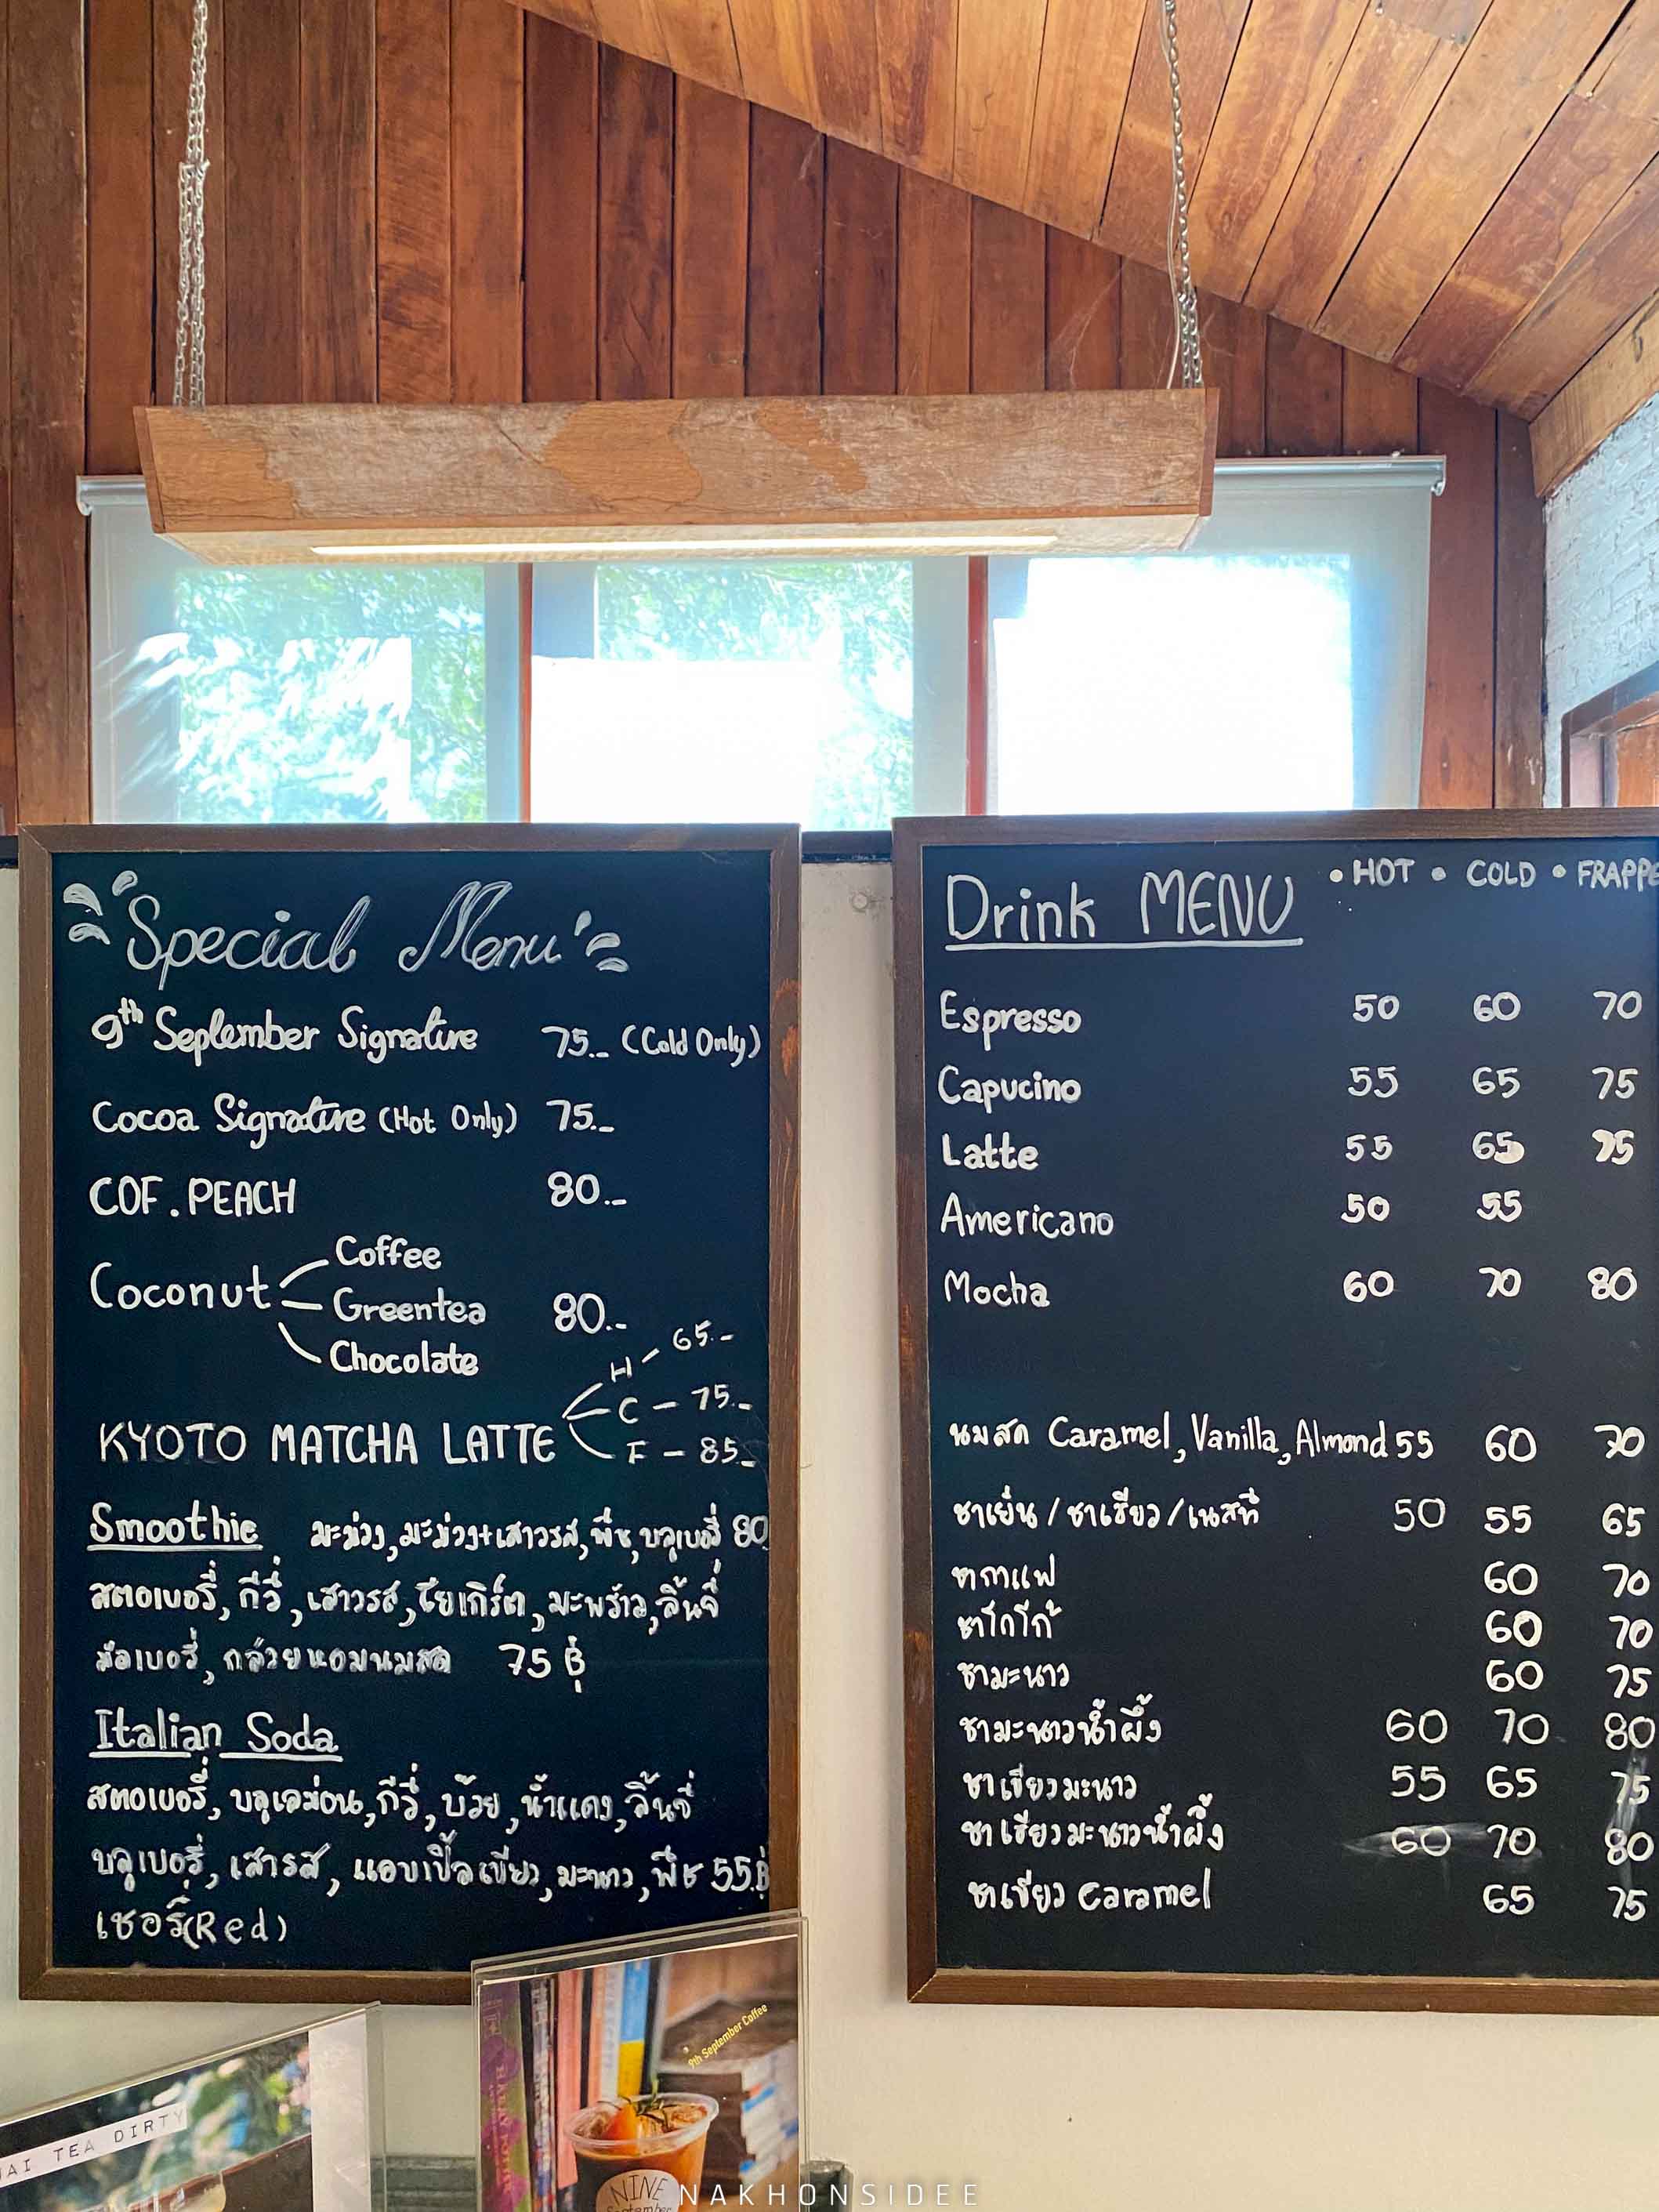 Special Menu
9th September Signature 75.- (Cold Only)
Cocoa Signature (Hot Only) 75.-
COF. PEACH 80.-
Coconut
Coffee
Greentea 80.-
Chocolate
KYOTO MATCHA LATTE
H - 65.-
C - 75.-
F - 85.-
Smoothie มะม่วง, มะม่วง+เสาวรส, พีช, บลูเบอรี่ 80
สตอเบอรี่, กีวี่, เสาวรส, โยเกิร์ต, มะพร้าว, ลิ้นจี่
มัลเบอรี่, กล้วยหอมนมสด 75 ฿
Italian Soda
สตอเบอรี่, บลูเลม่อน, กีวี่, บ๊วย, น้ำแดง, ลิ้นจี่
บลูเบอรี่, เสารส, แอบเปิ้ลเขียว, มะนาว, พีช 55.฿
เชอรี่(Red)
Drink MENU • HOT • COLD • FRAPPE
Espresso 50 60 70
Capucino 55 65 75
Latte 55 65 75
Americano 50 55
Mocha 60 70 80
นมสด Caramel, Vanilla, Almond 55 60 70
ชาเย็น / ชาเขียว / เนสที 50 55 65
ชากาแฟ 60 70
ชาโกโก้ 60 70
ชามะนาว 60 75
ชามะนาวน้ำผึ้ง 60 70 80
ชาเขียวมะนาว 55 65 75
ชาเขียวมะนาวน้ำผึ้ง 60 70 80
ชาเขียว Caramel 65 75
9th September Coffee
TEA DIRTY
NINE
September
NAKHONSIDEE